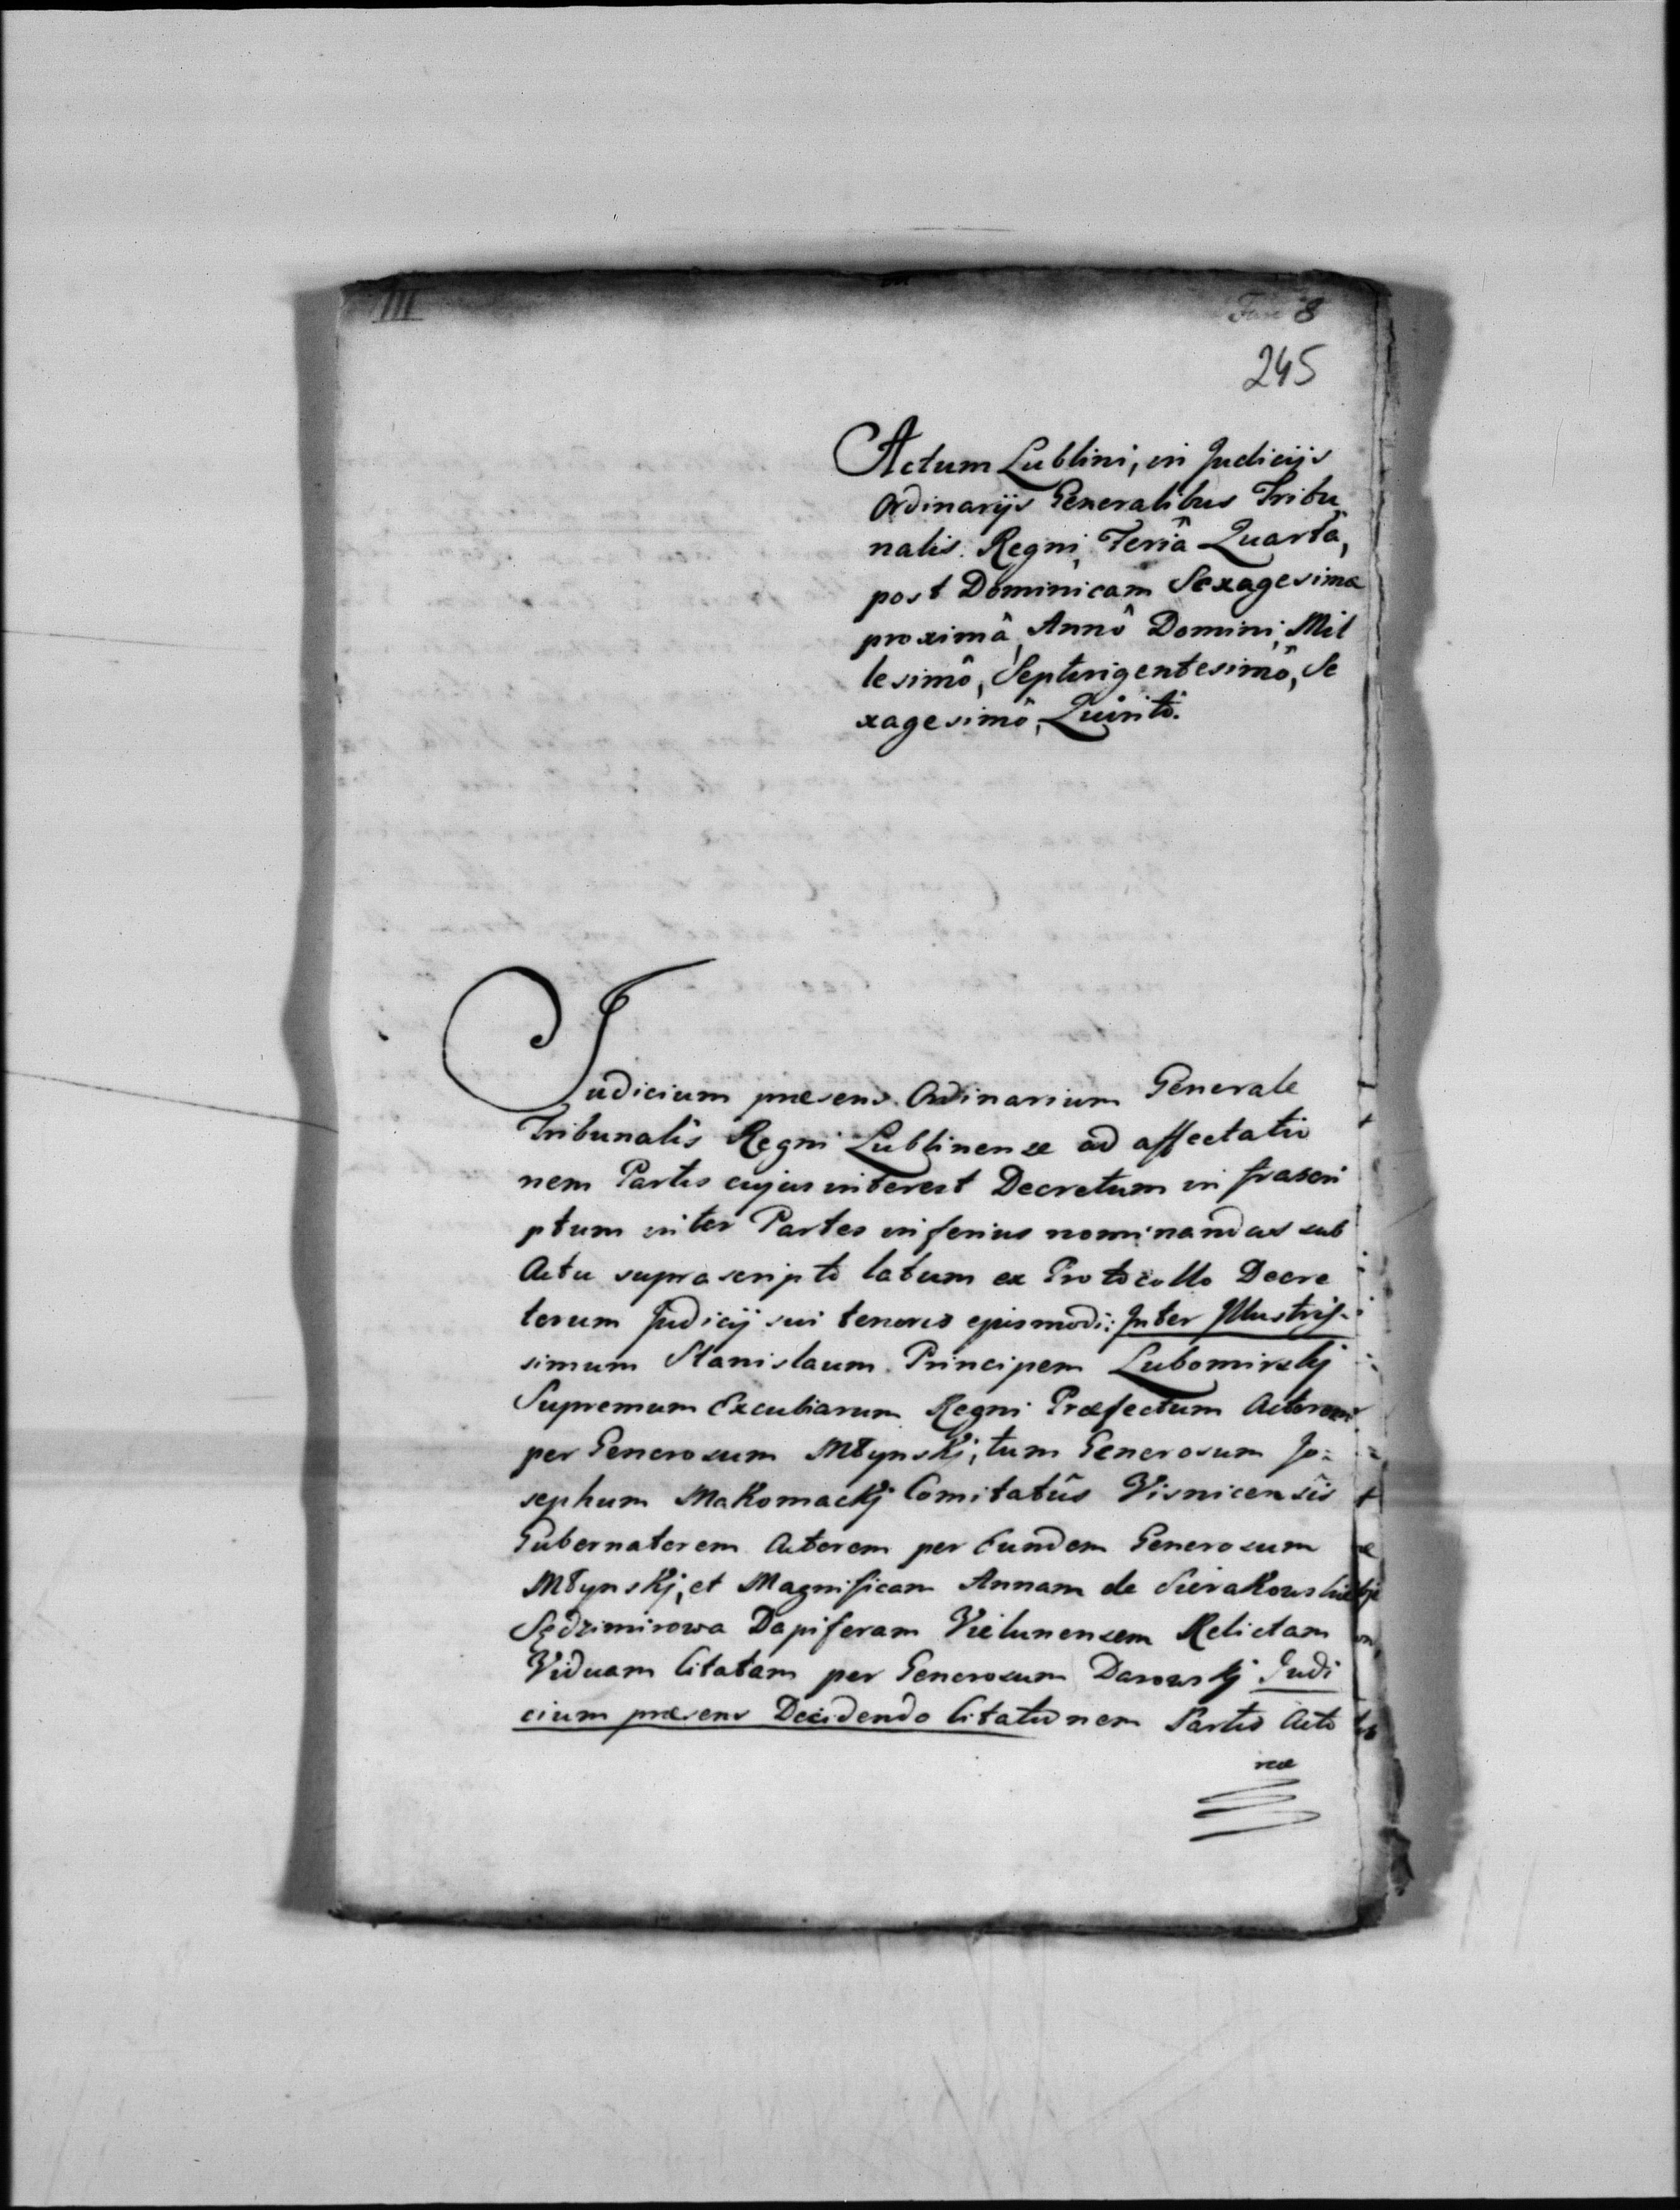 III
Fasc 8
245
Actum Lublini, in Judicijs
Ordinarijs Generalibus Tribu
nalis Regni, Feriâ Quartâ,
post Dominicam Sexagesimæ
proximâ, Annô Domini, Mil
lesimô, Septingentesimô, Se
xagesimô, Quintô.
Judicium præsens Ordinarium Generale
Tribunalis Regni Lublinense ad affectatio
nem Partis cujus interest Decretum in frascri
ptum inter Partes inferius nominandas sub
Actu suprascripto latum ex Protocollo Decre
torum Judicij sui tenoris ejusmodi: Inter Illustris-
simum Stanislaum Principem Lubomirskj
Supremum Excubiarum Regni Præfectum Actorem
per Generosum Młynskj, tum Generosum Jo=
sephum Makomackj Comitatûs Visnicensis
Gubernatorem Actorem per Eundem Generosum
Młynskj, et Magnificam Annam de Sierakowskie
Sędzimirowa Dapiferam Vielunensem Relictam
Viduam Citatam per Generosum Darowskj Judi
cium præsens Decidendo Citationem Partis Acto
reæ